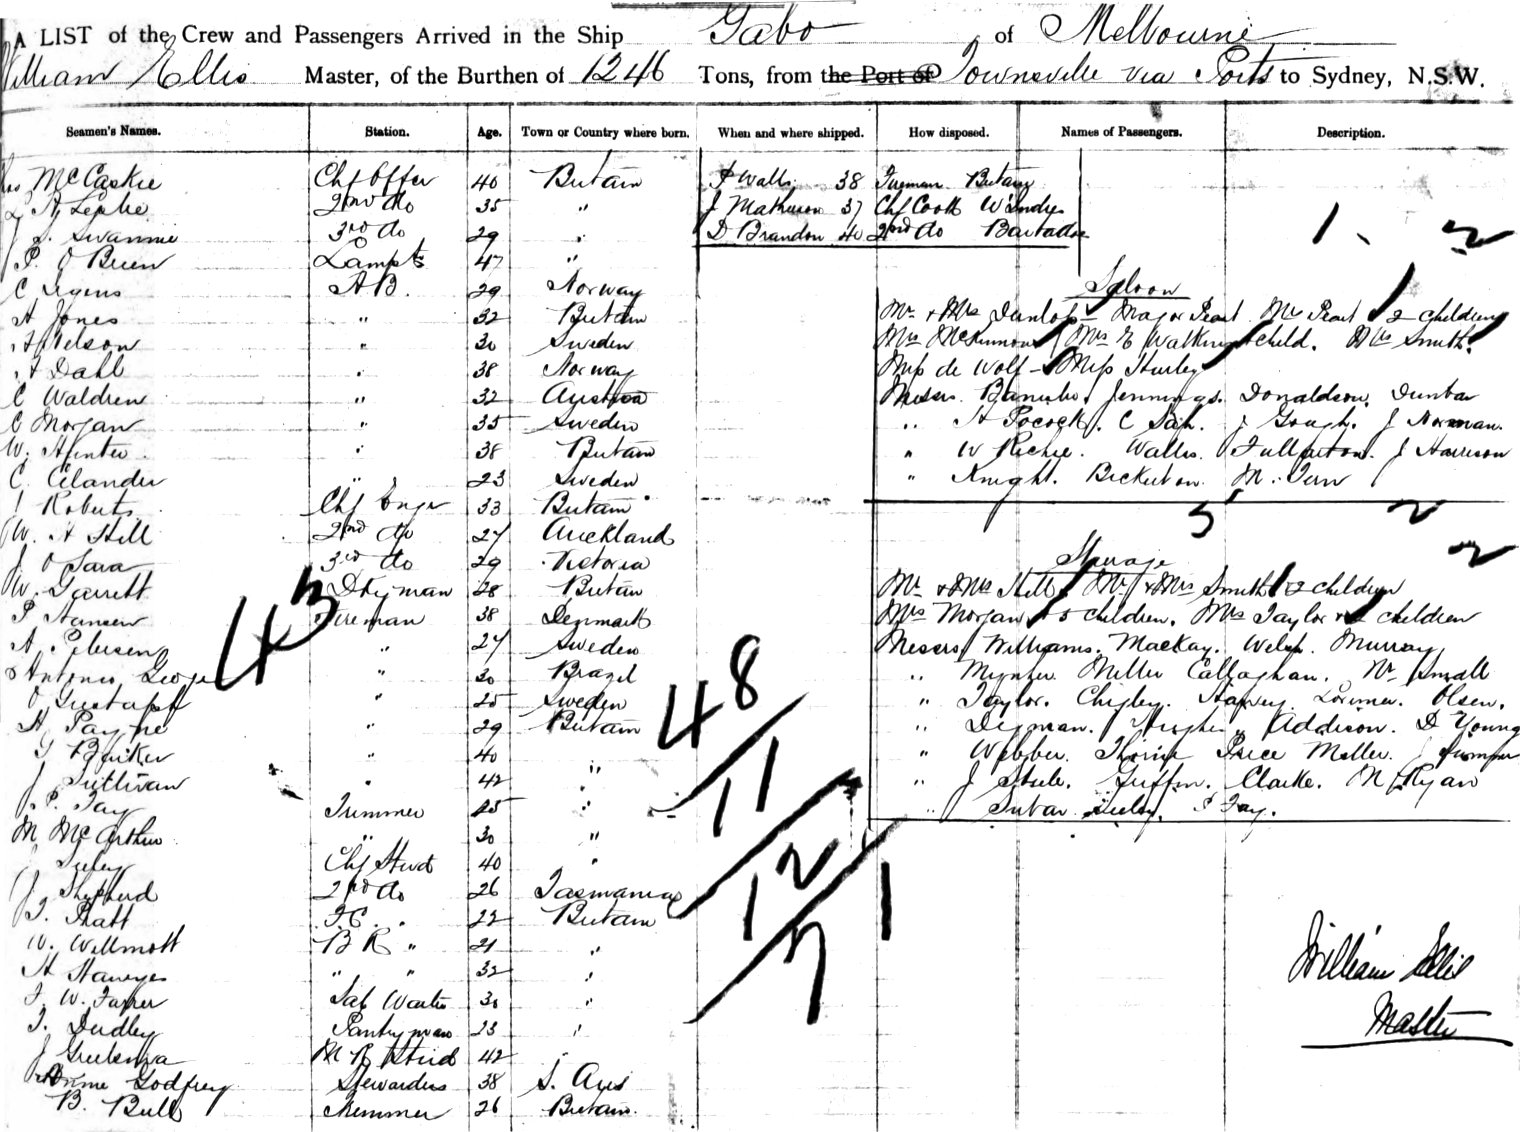 A LIST of the Crew and Passengers Arrived in the Ship Gabo of Melbourne
William Ellis Master, of the Burthen of 1246 Tons, from the Port of Townsville via Ports to Sydney, N.S.W.
Seamen's Names. Station. Age. Town or Country where born. When and where shipped. How disposed. Names of Passengers. Description.
McCaskie Chf Offer 40 Britain P Walls 38 Fireman Britain
Leslie 2nd do 35 " J Mathieson 37 Chf Cook W Indies
J S. Swannie 3rd do 29 " D Brandon 40 2nd do Barbados
P. O Brien Lamps 47 " 1. 2
C A.B. 29 Norway Saloon
A Jones " 32 Britain Mr & Mrs Dunlop - Major Peart Mrs Peart & 2 children
A Nelson " 30 Sweden Mrs McKinnon Mrs E Watkins & child. Mrs Smith.
A Dahl " 38 Norway Miss de Wolf - Miss Hurley
C Waldren " 32 Austria Messrs Jennings. Donaldson, Dunbar
C Morgan " 35 Sweden " A Pocock. C J Gough. J Norman.
W. Hunter " 38 Britain " W Richie. Wallis. Fullarton. J Harrison
C. Elander " 23 Sweden " Knight. Bickerton. M.
J Roberts Chf Engr 33 Britain
W. A Hill 2nd do 27 Auckland 5 2
J. O Sara 3rd do 29 Victoria Steerage 2
W. Garrett Dkyman 28 Britain Mr & Mrs Hill Mr & Mrs Smith & 2 children
P Hansen Fireman 38 Denmark Mrs Morgan & 5 children. Mrs Taylor & 2 children
A Petersen " 27 Sweden Messrs Williams. Mackay. Welsh. Murray
Antonio George " 30 Brazil " Miller Callaghan. Wm Small
O Gustafsf " 25 Sweden " Taylor. Chigley. Harvey. Lorimer. Olsen.
H Payne " 29 Britain " Digman. Hughes Addison. D Young
G Barker " 40 " " Webber. Price Meller. J
J Sullivan " 42 " " J Steele. Griffin. Clarke. M Ryan
P. Fay Trimmer 25 " " P Fay.
M McArthur " 30 "
Chf Stwd 40 "
J. Shepherd 2nd do 26 Tasmania
T. Pratt F.C. " 22 Britain
W. Willmott B R " 21 "
H Hawyes " " 32 "
F. W. Farrer Sal Waiter 30 "
T. Dudley Pantryman 23 "
J M R Stwd 42 "
Annie Godfrey Stewardess 38 S. Aus
B. Bull 26 Britain
43
48
11
12
7 1
William Ellis
Master